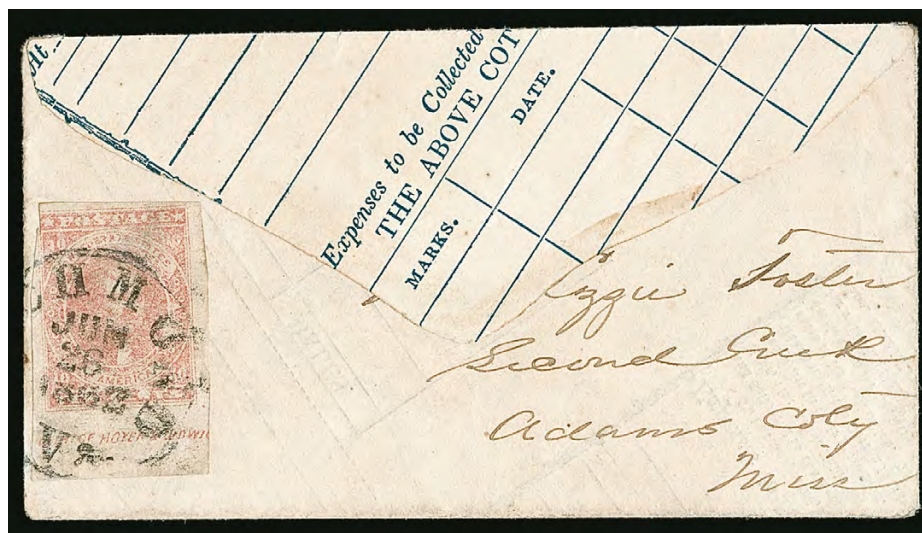 At
Expenses to be Collected
THE ABOVE COT
MARKS.
DATE.
POSTAGE
10
JUN
26
1862
Va.
AMERICA
HOYER
Lizzie Foster
Second Creek
Adams Coty
Miss